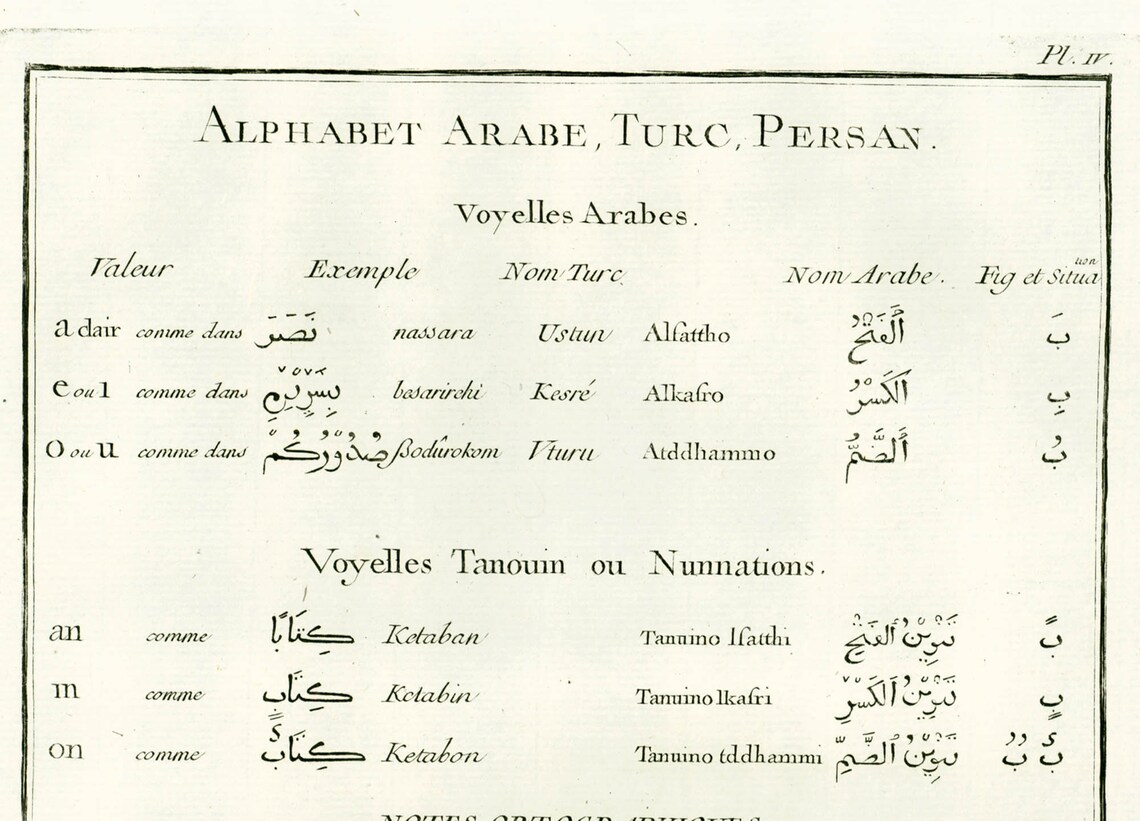 Pl. IV.
ALPHABET ARABE, TURC, PERSAN.
Voyelles Arabes.
Valeur Exemple Nom Turc. Nom Arabe. Fig et Situation
a clair comme dans نَصَرَ nassara Ustun Alfattho اَلْفَتْحُ بَ
e ou i comme dans besarirchi Kesré Alkasro اَلْكَسْرُ بِ
O ou u comme dans صُدُورُكُمْ ßodûrokom Vturu Atddhammo اَلضَّمُّ بُ
Voyelles Tanouin ou Nunnations.
an comme كِتَابًا Ketaban Tanuino lfatthi تَنْوِينُ ٱلْفَتْحِ بً
in comme كِتَابٍ Ketabin Tanuino lkasri تَنْوِينُ ٱلْكَسْرِ بٍ
on comme كِتَابٌ Ketabon Tanuino tddhammi تَنْوِينُ ٱلضَّمِّ بٌ بٌ